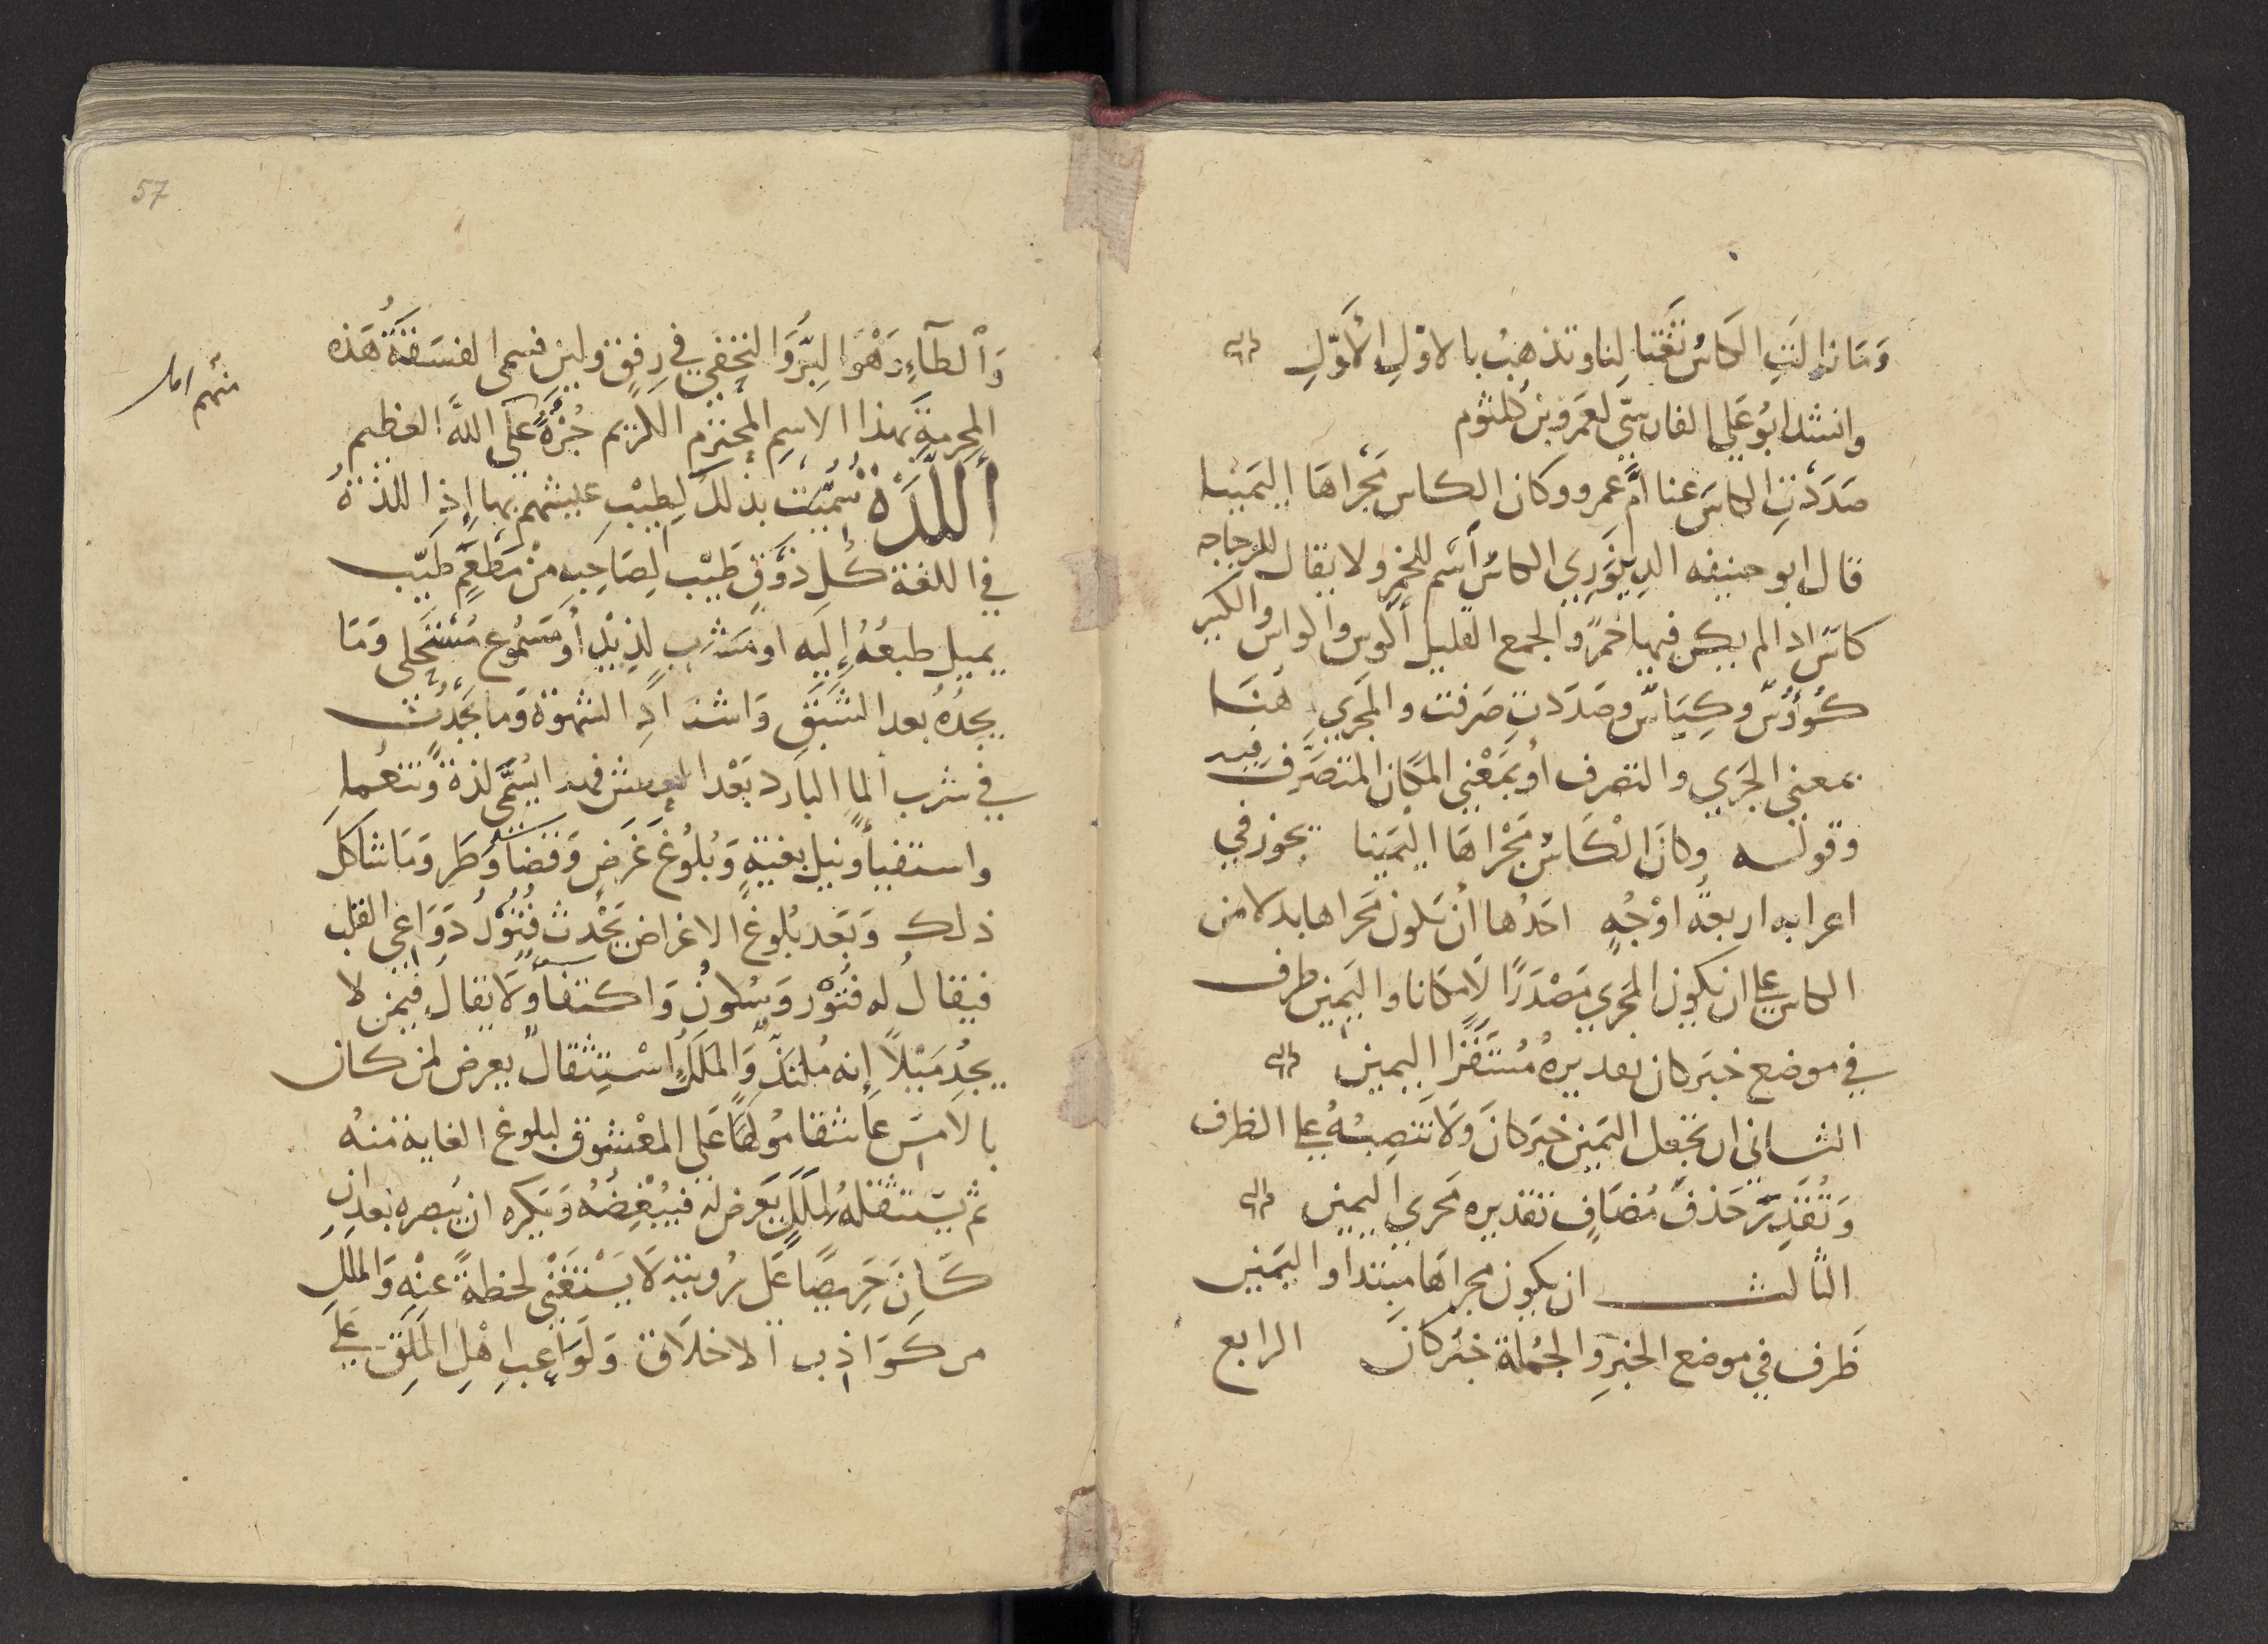 وَمَا زَالَتِ الكَاسُ تَغْتَالنا وتذهبُ بالاوّلِ الْأَوّلِ
وانشد ابُو عَلي الفارسيّ لعَمرو بن كلثوم
صَدَدْتِ الكاسَ عنا أُمَّ عمرو وكان الكاس مَجْراهَا اليَمينا
قال ابو حنيفه الدِينَوَرِي الكاسُ اسْم للخمرِ ولا يقال للزجاجه
كاسٌ اذا لم يكن فيها خمرٌ والجمع القليل أَكوس والواس والكبير
كُؤُوسٌ وكِيَاسٌ وصَدَدتِ صَرفت والمَجرِي هُنَا
بمعني الجَري والتصرف أو بمَعْني المكَان المتصَرَّف فيه
وقوله وكانَ الْكَاسُ مَجْراهَا اليَمينا يجوز في
اعرابه اربعةُ اوْجُهٍ احَدُها أن تكون مَجراها بدلا من
الكاس علي ان يكون المَجري مَصْدَرًا لَا مكانا واليَمين ظرف
في موضع خبَر كان تقديرهُ مُسْتَقَرًا اليمين
الثاني ان تجعَل اليَمين خبَر كانَ وَلَا تنصِبهُ علي الظرف
وَتُقَدِّرَ حَذفَ مُضَافٍ تقديره مَجري اليمين
الثالث ان يكون مجراهَا مبتداً واليَمين
ظَرف في موضع الخبرِ والجُملة خبَر كانَ الرابع
57
وَالطآءِ رَهْوَ البِرّ وَالتخفي في رِفقٍ ولين فسمي الفسَقَةُ هَذه
المجرمةَ بهذا الاسِم المحُترَم الكَريم جُرْءَةً عَلى اللهَ العَظيم
منهم امل
أَللَّذَةْ سُمّيَت بذلكَ لِطِيْبِ عيشهم بها إِذِ اللذةُ
في اللغة كُل ذَوْقٍ طَيّب لِصَاحِبهِ مِنْ مَطعَمٍ طَيّب
يميل طبعُهُ إِلَيه او مَشرَبٍ لذِيْذٍ أو مَسْمُوعٍ مُسْتَحْلى وَمَا
يجدُهُ بعد الشبَقِ وَاشتدَادِ الشهوَة وَمَا يَحدُث
في شرب الما البارد بَعْد العطش فهذا يُسَمَّى لذةً وتنعُّما
واستفيأ ونيل بغيَةٍ وَبُلُوغ غَرَضٍ وَقضَا وَطَرٍ وَمَا شاكلَ
ذلك وَبَعد بُلوغ الاغراض يَحْدث فُتُوْلُ دَوَاعي القلب
فيقالُ له فتُوْر وَسُلونٌ وَاكتفا وَلَا يقال فيمَن لا
يجدُ مَيْلاً إِنه مُلتذٌ وَالمَلَلُ اسْتِثْقالٌ يعرض لمن كان
بالامسِ عَاشقا مُولَعًا عَلى المعْشوق لبلوغ الغايه منهُ
ثم يَسْتثقلهُ لمَلَلٍ يَعرض له فيُبْغِضُهُ وَيكره ان يُبصره بعد انْ
كَانَ حَرِيصًا عَلى رُويته لَا يَسْتَغْنى لحظةً عنْهِ وَالمَلَلِ
من كَوَاذِب الاخلاق وَلَوَاعِبِ اهْلِ المَلَقِ عَلي